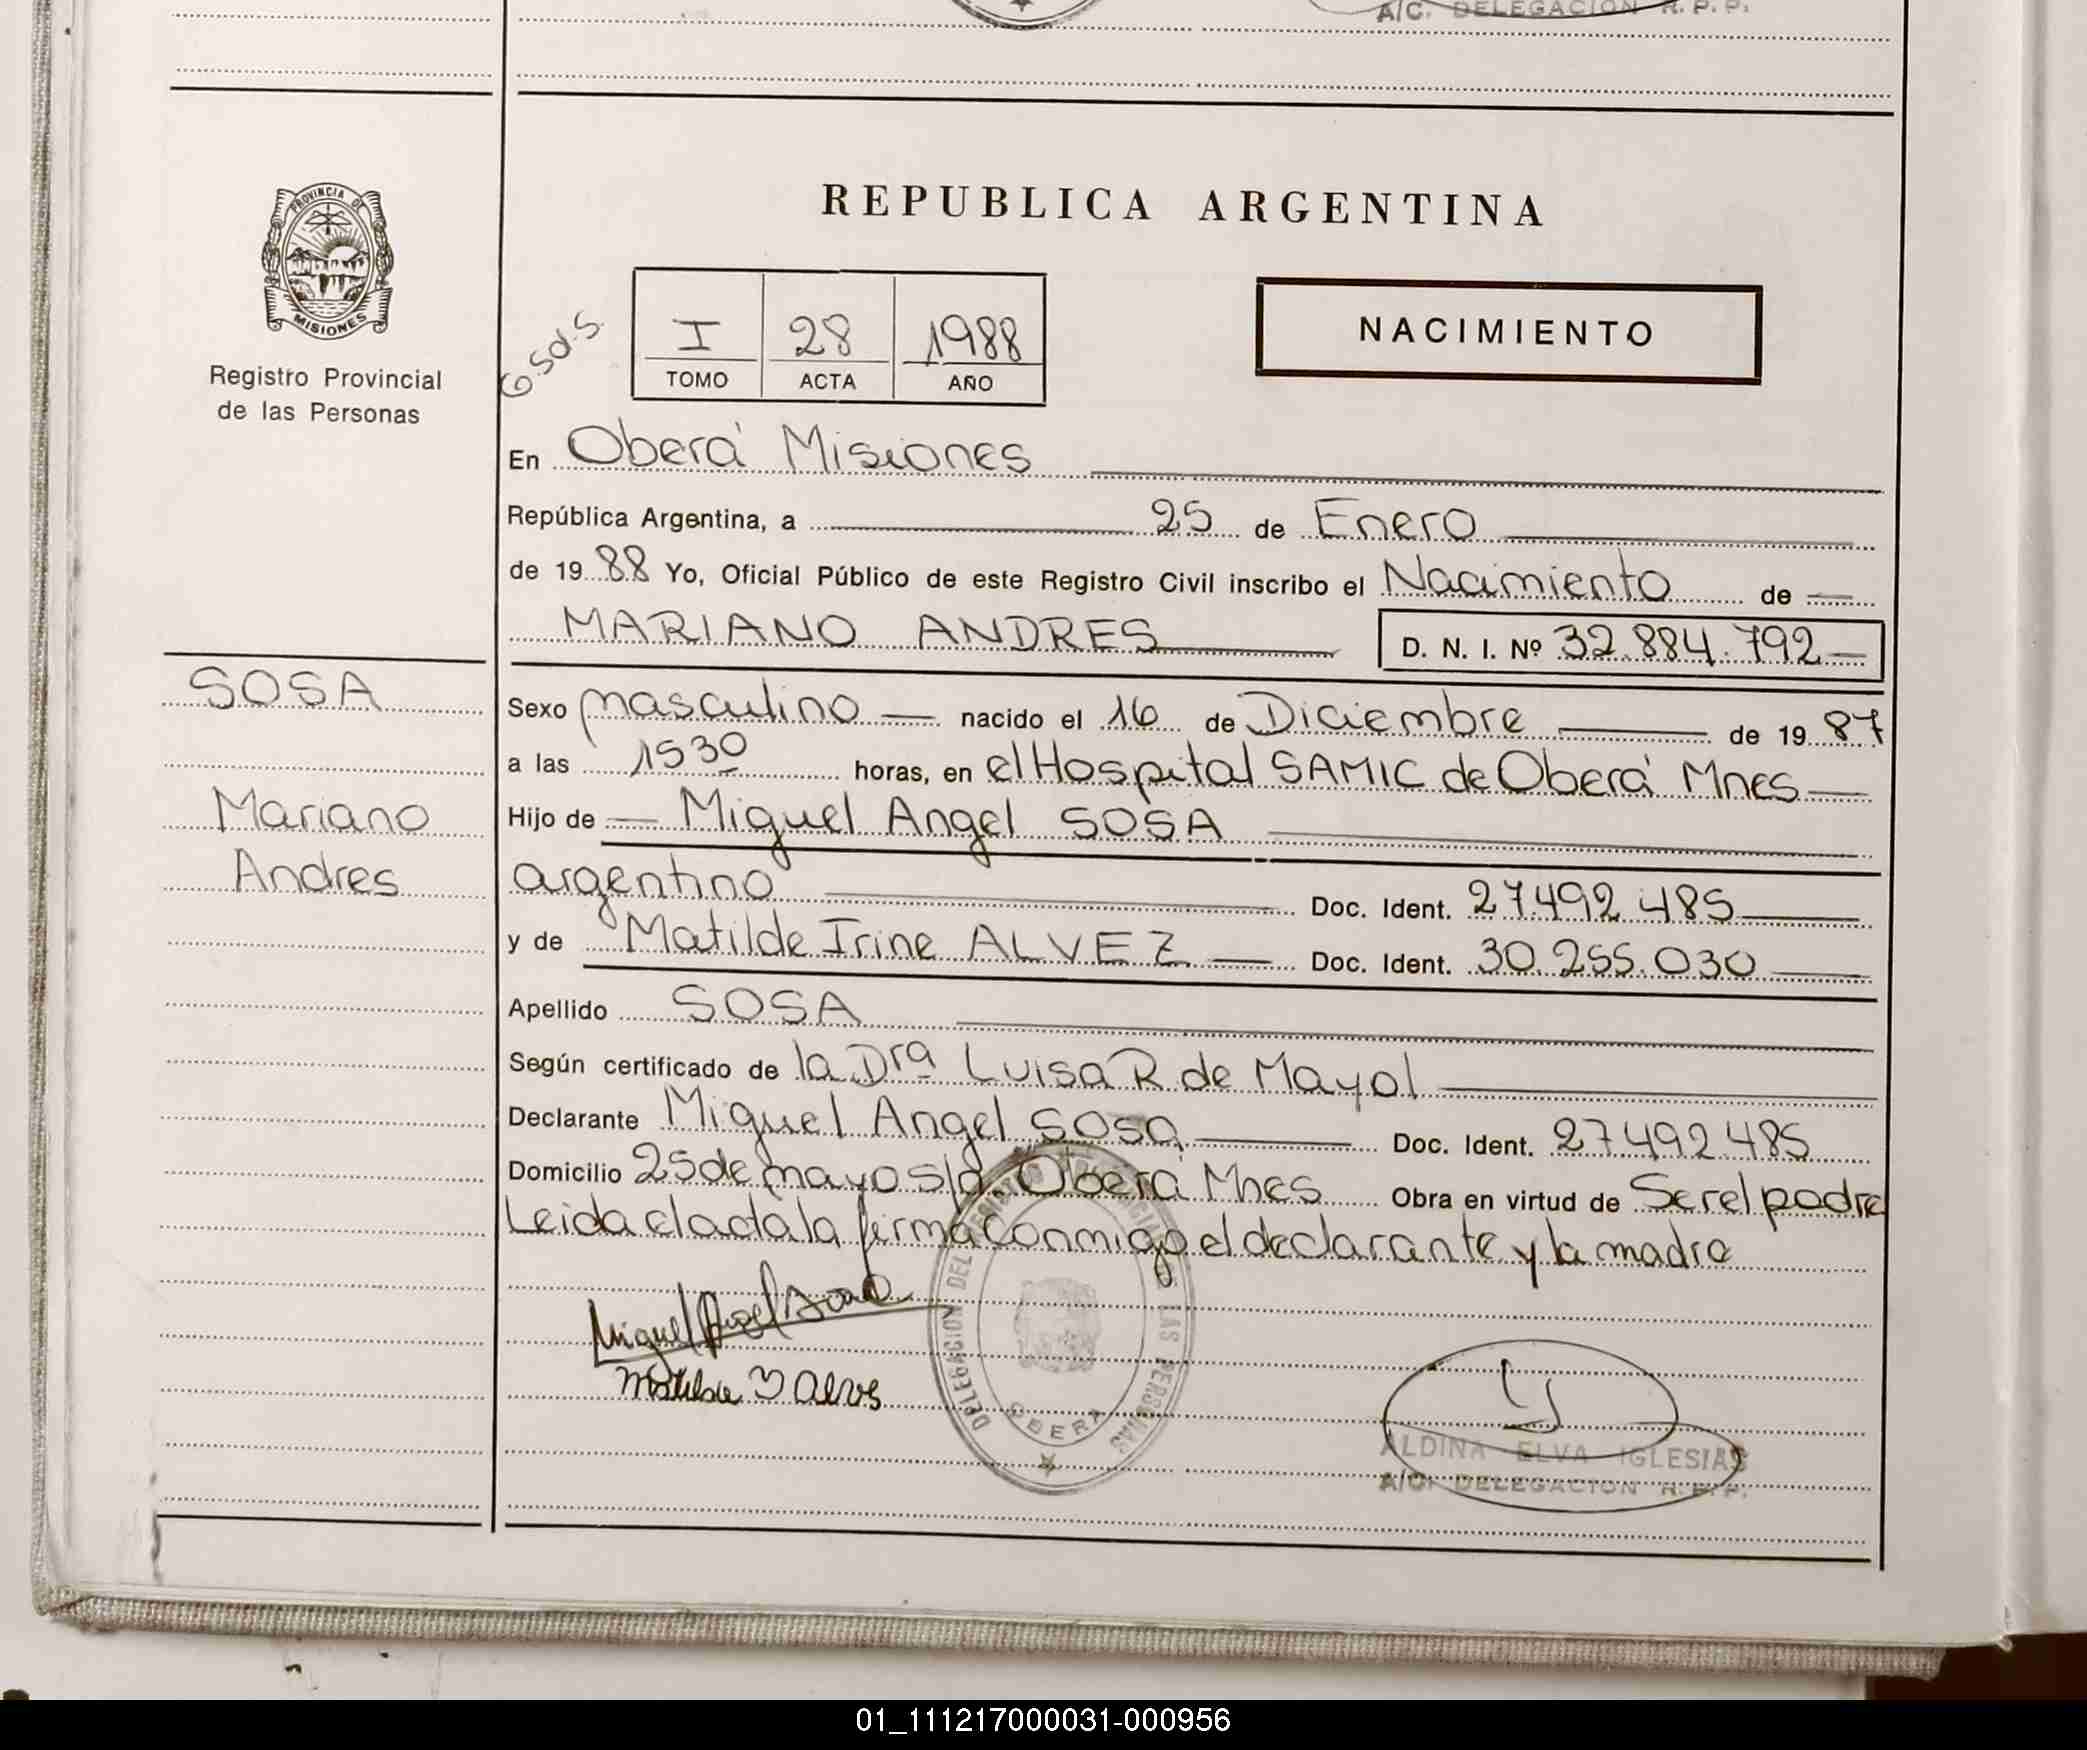 A/C. DELEGACION R. P. P.
PROVINCIA DE
MISIONES
Registro Provincial
de las Personas
REPUBLICA ARGENTINA
I 28 1988
TOMO ACTA AÑO
NACIMIENTO
En Oberá Misiones
República Argentina, a 25 de Enero
de 1988 Yo, Oficial Público de este Registro Civil inscribo el Nacimiento de
MARIANO ANDRES D. N. I. Nº 32.884.792
SOSA
Mariano
Andres
Sexo masculino nacido el 16 de Diciembre de 1987
a las 1530 horas, en el Hospital SAMIC de Oberá Mnes
Hijo de Miguel Angel SOSA
argentino Doc. Ident. 27.492.485
y de Matilde Irine ALVEZ Doc. Ident. 30.255.030
Apellido SOSA
Según certificado de la Drª Luisa R de Mayol
Declarante Miguel Angel Sosa Doc. Ident. 27492485
Domicilio 25 de mayo s/n. Oberá Mnes Obra en virtud de Ser el padre
Leida el acta la firma conmigo el declarante y la madre
Miguel Angel Sosa
Matilde I Alves
DELEGACION DEL REGISTRO PROVINCIAL DE LAS PERSONAS
OBERA
ALDINA ELVA IGLESIAS
A/C. DELEGACION R. P. P.
01_111217000031-000956